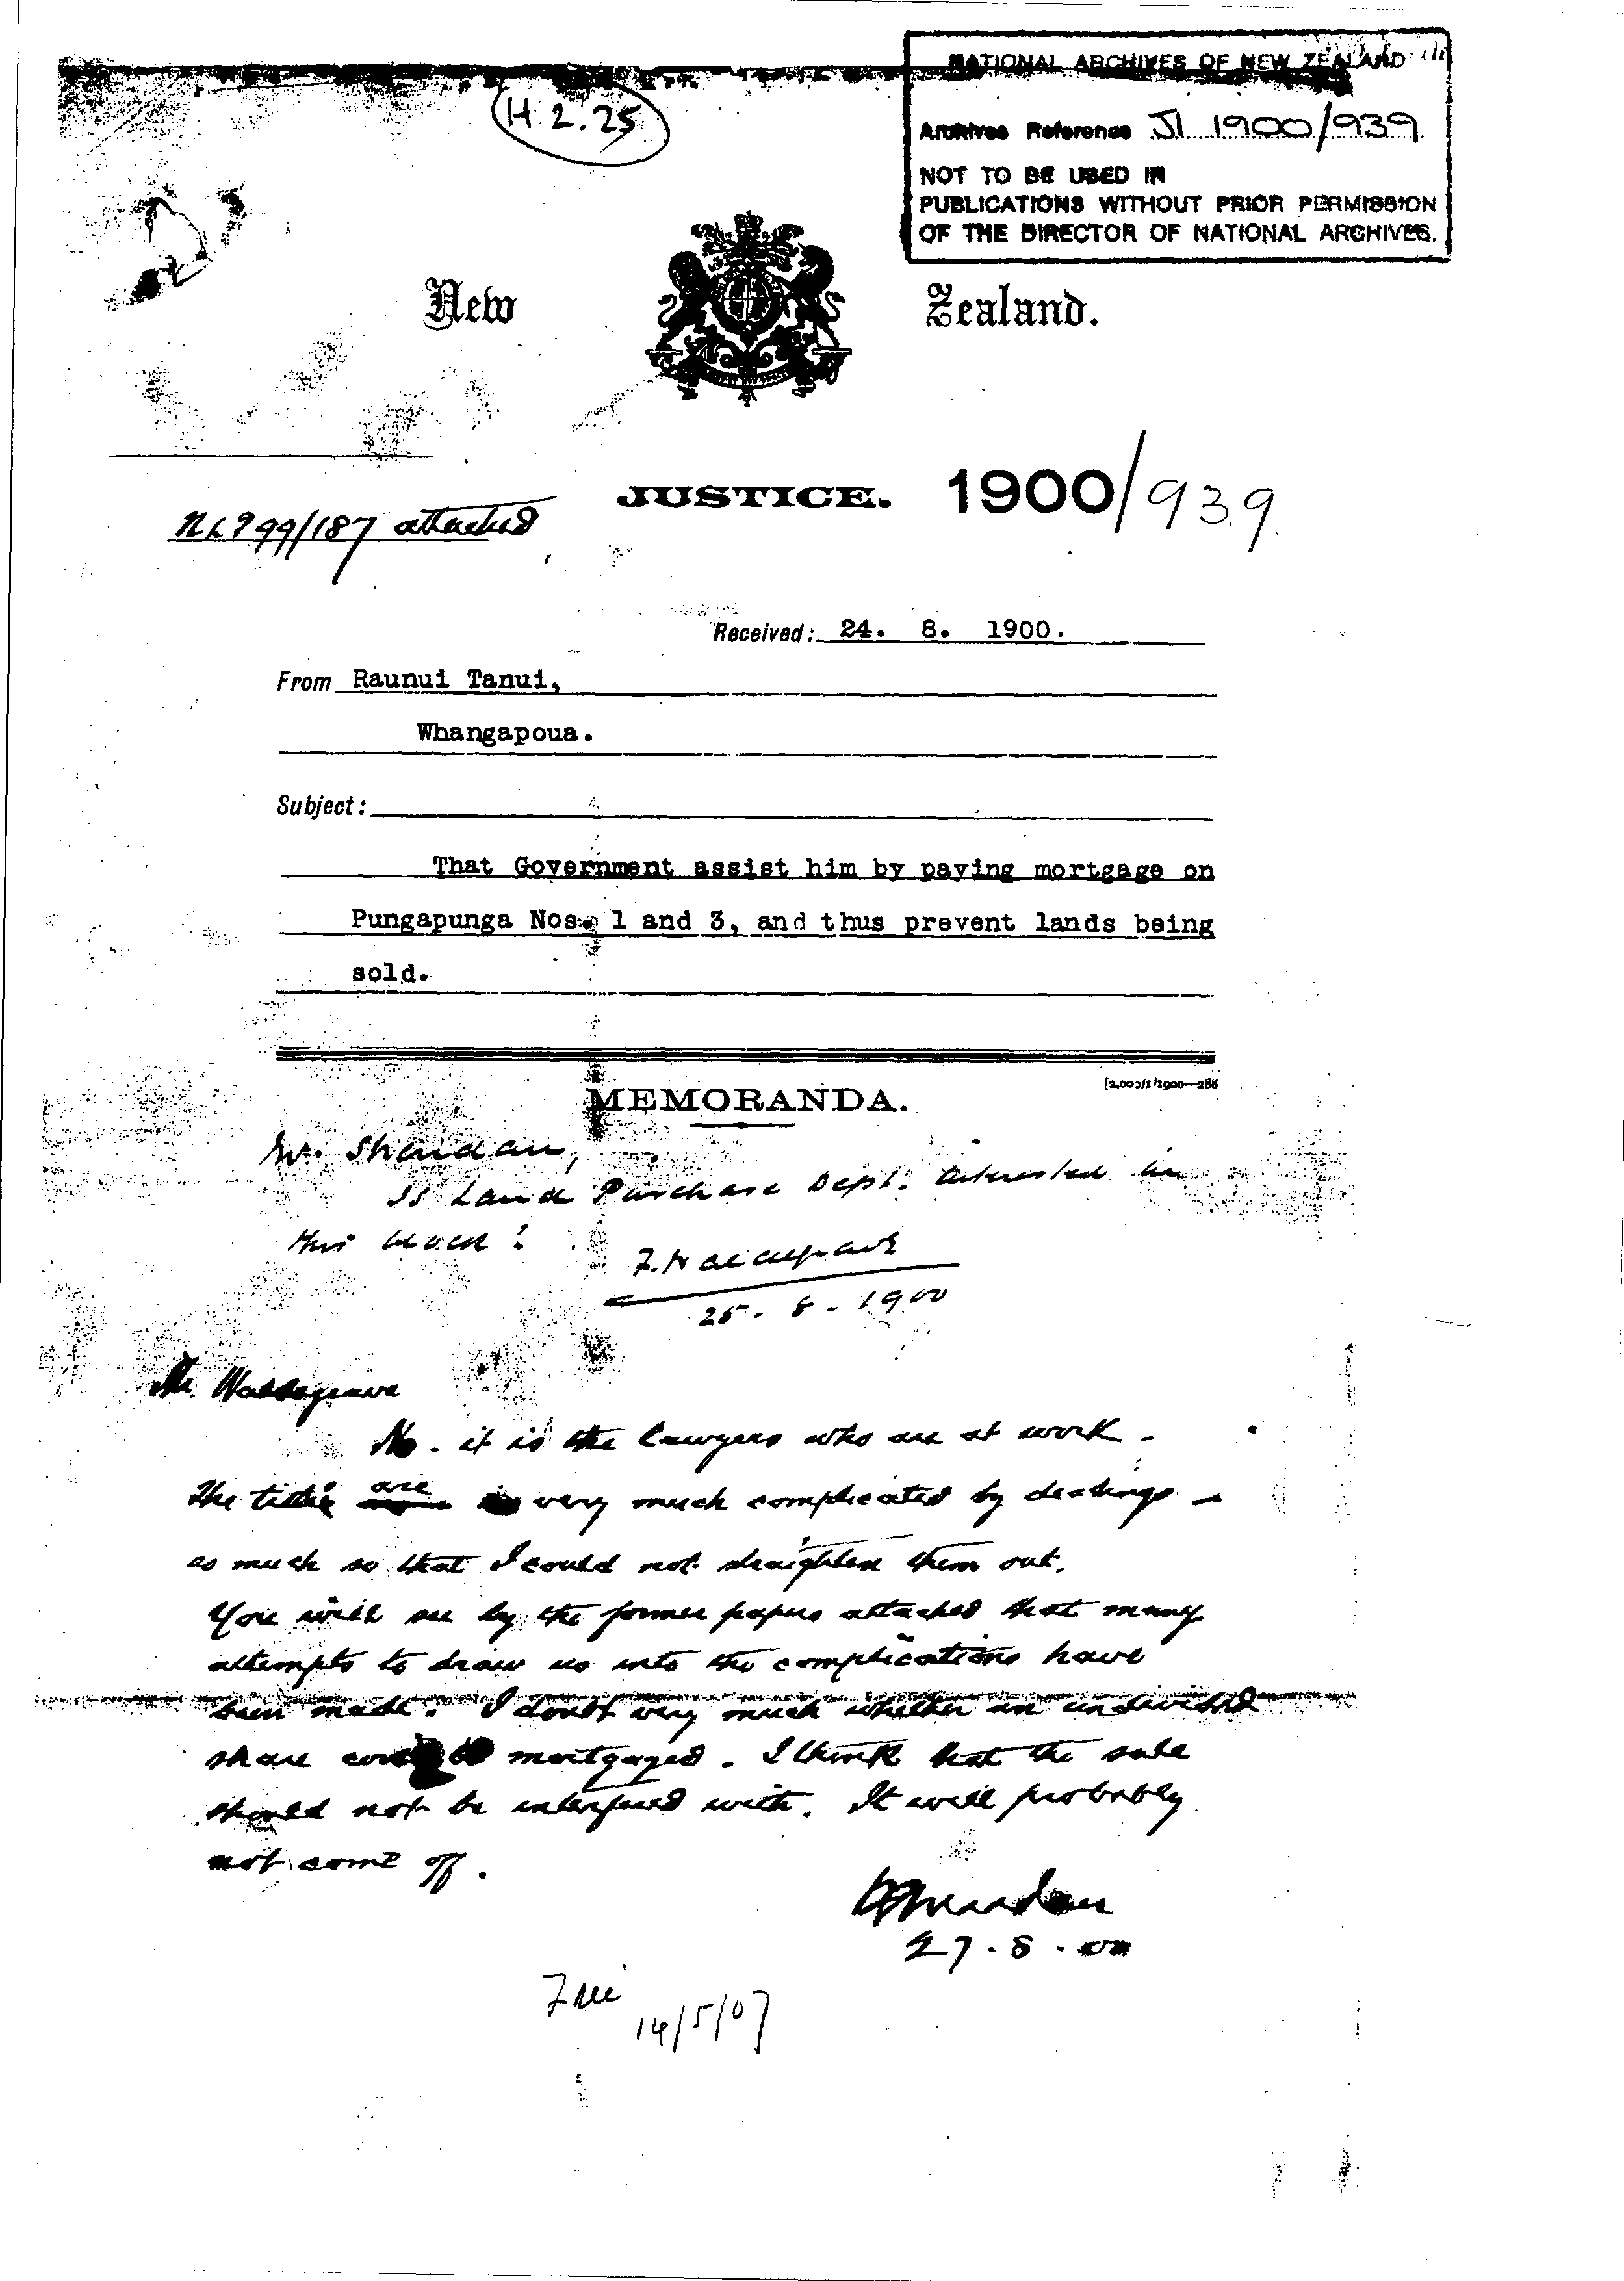 NATIONAL ARCHIVES OF NEW ZEALAND
H.2.25
Archives Reference J1 1900/939
NOT TO BE USED IN
PUBLICATIONS WITHOUT PRIOR PERMISSION
OF THE DIRECTOR OF NATIONAL ARCHIVES.
New Zealand.
JUSTICE. 1900/939.
NLP 99/187 attached
Received: 24. 8. 1900.
From Raunui Tanui,
Whangapoua.
Subject:
That Government assist him by paying mortgage on
Pungapunga Nos. 1 and 3, and thus prevent lands being
sold.
[2,000/1/1900—286
MEMORANDA.
Mr. Sheridan,
Is Land Purchase Dept. interested in
this block?
F. Waldegrave
25. 8. 1900
Mr. Waldegrave
No. it is the lawyers who are at work.
The titles are very much complicated by dealings –
as much so that I could not straighten them out.
You will see by the former papers attached that many
attempts to draw us into the complications have
been made. I doubt very much whether an undivided
share could be mortgaged. I think that the sale
should not be interfered with. It will probably
not come off.
Sheridan
27.8.00
File
14/5/07